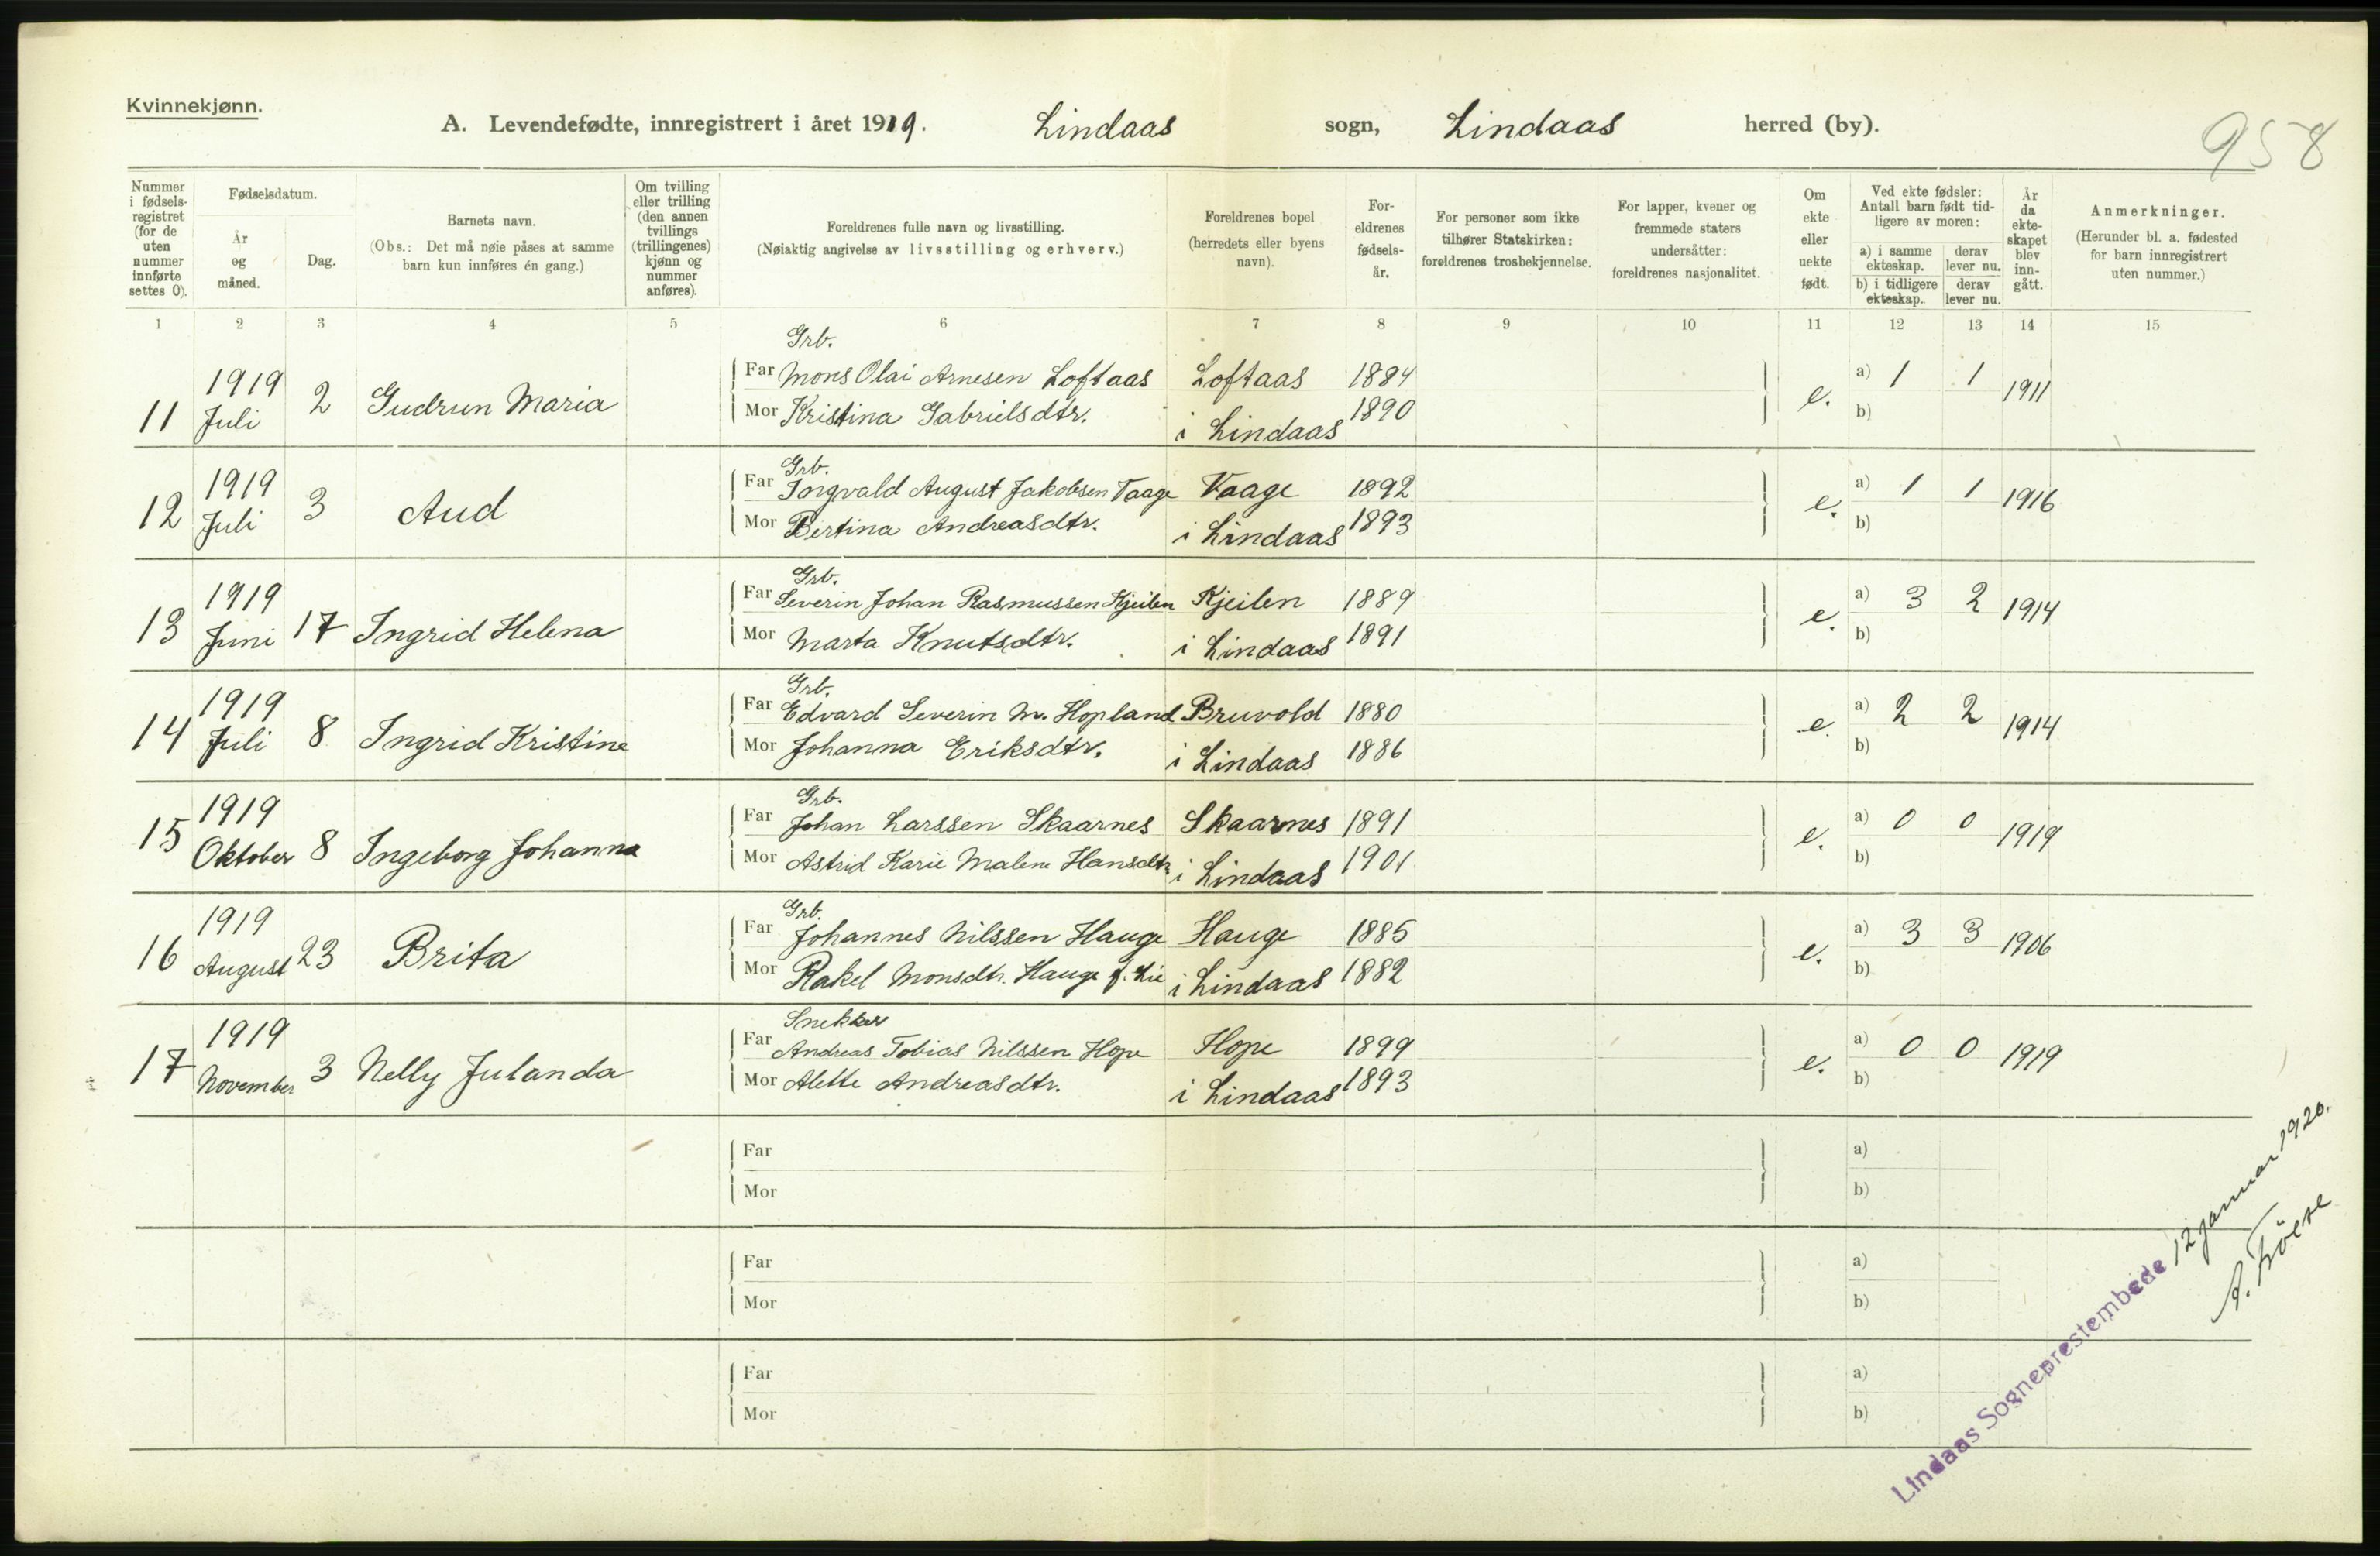 Kvinnekjønn.
A. Levendefødte, innregistrert i året 1919. Lindaas sogn, Lindaas herred (by).
958
Nummer i fødsels-registret (for de uten nummer innførte settes 0).
Fødselsdatum.
År og måned.
Dag.
Barnets navn.
(Obs.: Det må nøie påses at samme barn kun innføres én gang.)
Om tvilling eller trilling (den annen tvillings (trillingenes) kjønn og nummer anføres).
Foreldrenes fulle navn og livsstilling.
(Nøiaktig angivelse av livsstilling og erhverv.)
Foreldrenes bopel (herredets eller byens navn).
For-eldrenes fødsels-år.
For personer som ikke tilhører Statskirken: foreldrenes trosbekjennelse.
For lapper, kvener og fremmede staters undersåtter: foreldrenes nasjonalitet.
Om ekte eller uekte født.
Ved ekte fødsler: Antall barn født tid-ligere av moren:
a) i samme ekteskap.
derav lever nu.
b) i tidligere ekteskap.
derav lever nu.
År da ekte-skapet blev inn-gått.
Anmerkninger.
(Herunder bl. a. fødested for barn innregistrert uten nummer.)
1 2 3 4 5 6 7 8 9 10 11 12 13 14 15
Grb.
11 1919 Juli 2 Gudrun Maria Far Mons Olai Arnesen Loftaas Loftaas 1884 e. a) 1 1 1911
Mor Kristina Gabrielsdtr. i Lindaas 1890 b)
Grb.
12 1919 Juli 3 Aud Far Ingvald August Jakobsen Vaage Vaage 1892 e. a) 1 1 1916
Mor Bertina Andreasdtr. i Lindaas 1893 b)
Grb.
13 1919 Juni 17 Ingrid Helena Far Severin Johan Rasmussen Kjeilen Kjeilen 1889 e. a) 3 2 1914
Mor Marta Knutsdtr. i Lindaas 1891 b)
Grb.
14 1919 Juli 8 Ingrid Kristine Far Edvard Severin M. Hopland Bruvold 1880 e. a) 2 2 1914
Mor Johanna Eriksdtr. i Lindaas 1886 b)
Grb.
15 1919 Oktober 8 Ingeborg Johanna Far Johan Larssen Skaarnes Skaarnes 1891 e. a) 0 0 1919
Mor Astrid Karie Malene Hansdtr. i Lindaas 1901 b)
Grb.
16 1919 August 23 Brita Far Johannes Nilssen Hauge Hauge 1885 e. a) 3 3 1906
Mor Rakel Monsdtr. Hauge f. Lie i Lindaas 1882 b)
Snekker
17 1919 November 3 Nelly Julanda Far Andreas Tobias Nilssen Hope Hope 1899 e. a) 0 0 1919
Mor Alette Andreasdtr. i Lindaas 1893 b)
Far a)
Mor b)
Far a)
Mor b)
Far a)
Mor b)
Lindaas Sogneprestembede 12 januar 1920.